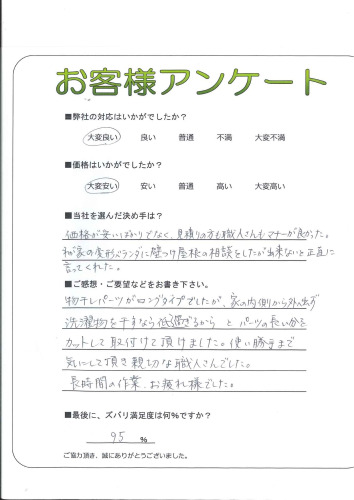 お客様アンケート
■弊社の対応はいかがでしたか？
大変良い 良い 普通 不満 大変不満
■価格はいかがでしたか？
大変安い 安い 普通 高い 大変高い
■当社を選んだ決め手は？
価格が安いばかりでなく、見積りの方も職人さんもマナーが良かった。
わが家の変形ベランダに壁つけ屋根の相談をしたが出来ないと正直に
言ってくれた。
■ご感想・ご要望などをお書き下さい。
物干しパーツがロングタイプでしたが、家の内側から外へ出ず
洗濯物を干すなら低過ぎるからと パーツの長い分を
カットして取付けて頂けました。使い勝手まで
気にして頂き親切な職人さんでした。
長時間の作業、お疲れ様でした。
■最後に、ズバリ満足度は何%ですか？
95 %
ご協力頂き、誠にありがとうございました。